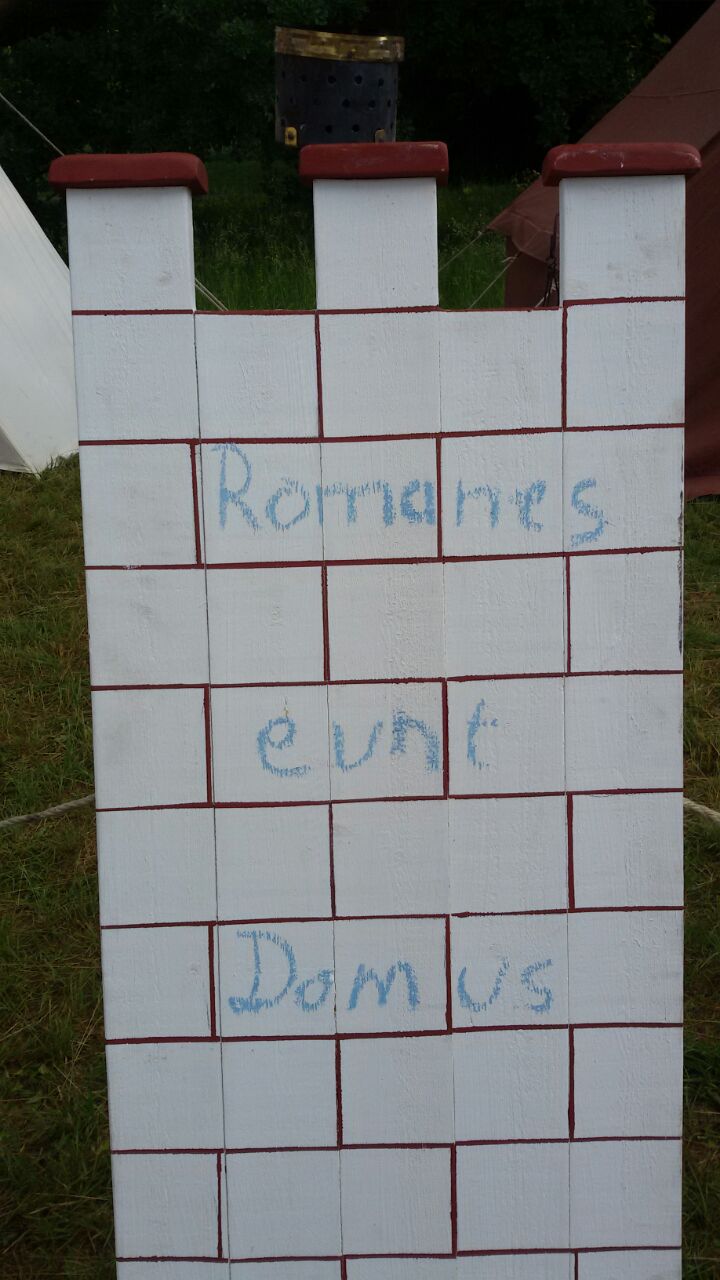 Romanes
eunt
Domus